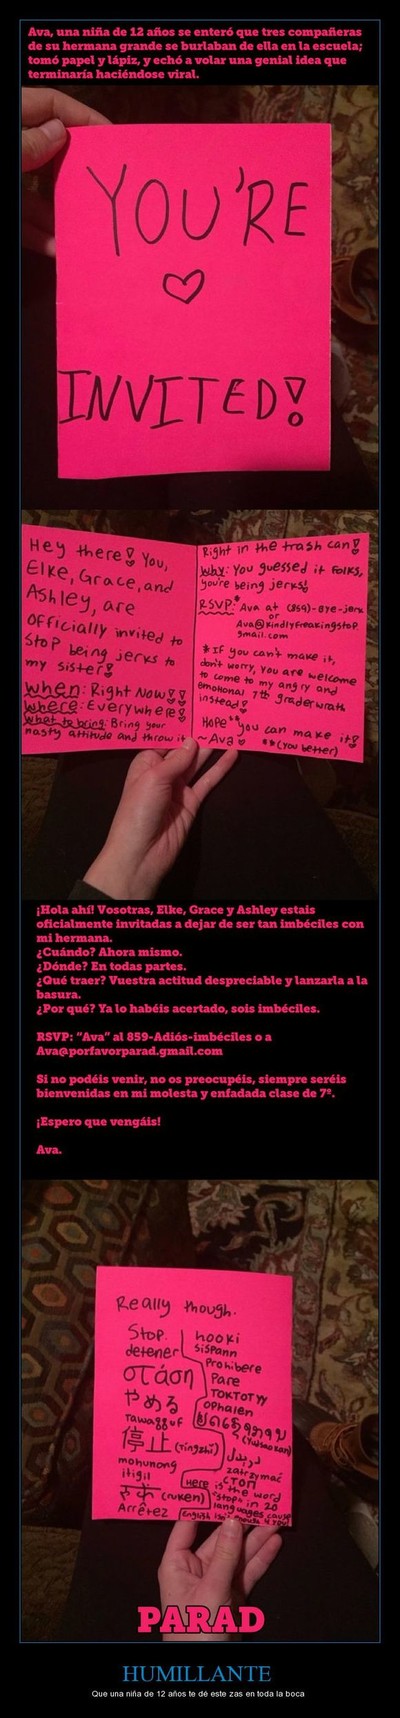 Ava, una niña de 12 años se enteró que tres compañeras
de su hermana grande se burlaban de ella en la escuela;
tomó papel y lápiz, y echó a volar una genial idea que
terminaría haciéndose viral.
YOU'RE
♡
INVITED!
Hey there! You,
Elke, Grace, and
Ashley, are
officially invited to
stop being jerks to
my sister!
when: Right Now!!
where: Everywhere!
what to bring: Bring your
nasty attitude and throw it
Right in the trash can!
Why: You guessed it folks,
you're being jerks!
RSVP:* Ava at (859)-Bye-jerk
or
Ava@Kindlyfreakingstop.
gmail.com
* If you can't make it,
don't worry, you are welcome
to come to my angry and
emotional 7th grader wrath
instead!
Hope** you can make it!
~Ava ♡ **(You better)
¡Hola ahí! Vosotras, Elke, Grace y Ashley estais
oficialmente invitadas a dejar de ser tan imbéciles con
mi hermana.
¿Cuándo? Ahora mismo.
¿Dónde? En todas partes.
¿Qué traer? Vuestra actitud despreciable y lanzarla a la
basura.
¿Por qué? Ya lo habéis acertado, sois imbéciles.
RSVP: “Ava” al 859-Adiós-imbéciles o a
Ava@porfavorparad.gmail.com
Si no podéis venir, no os preocupéis, siempre seréis
bienvenidas en mi molesta y enfadada clase de 7º.
¡Espero que vengáis!
Ava.
Really though.
Stop
detener
στάση
やめる
Tawagguf
停止 (Tíngzhǐ)
mohunong
itigil
(ruken)
Arrêtez
hooki
sispann
Prohibere
Pare
TOKTOTYY
Ophalen
(Yudsaokan)
zatrzymać
СТОП
Here is the word
"stop" in 20
languages cause
English isn't enough 4 you
PARAD
HUMILLANTE
Que una niña de 12 años te dé este zas en toda la boca